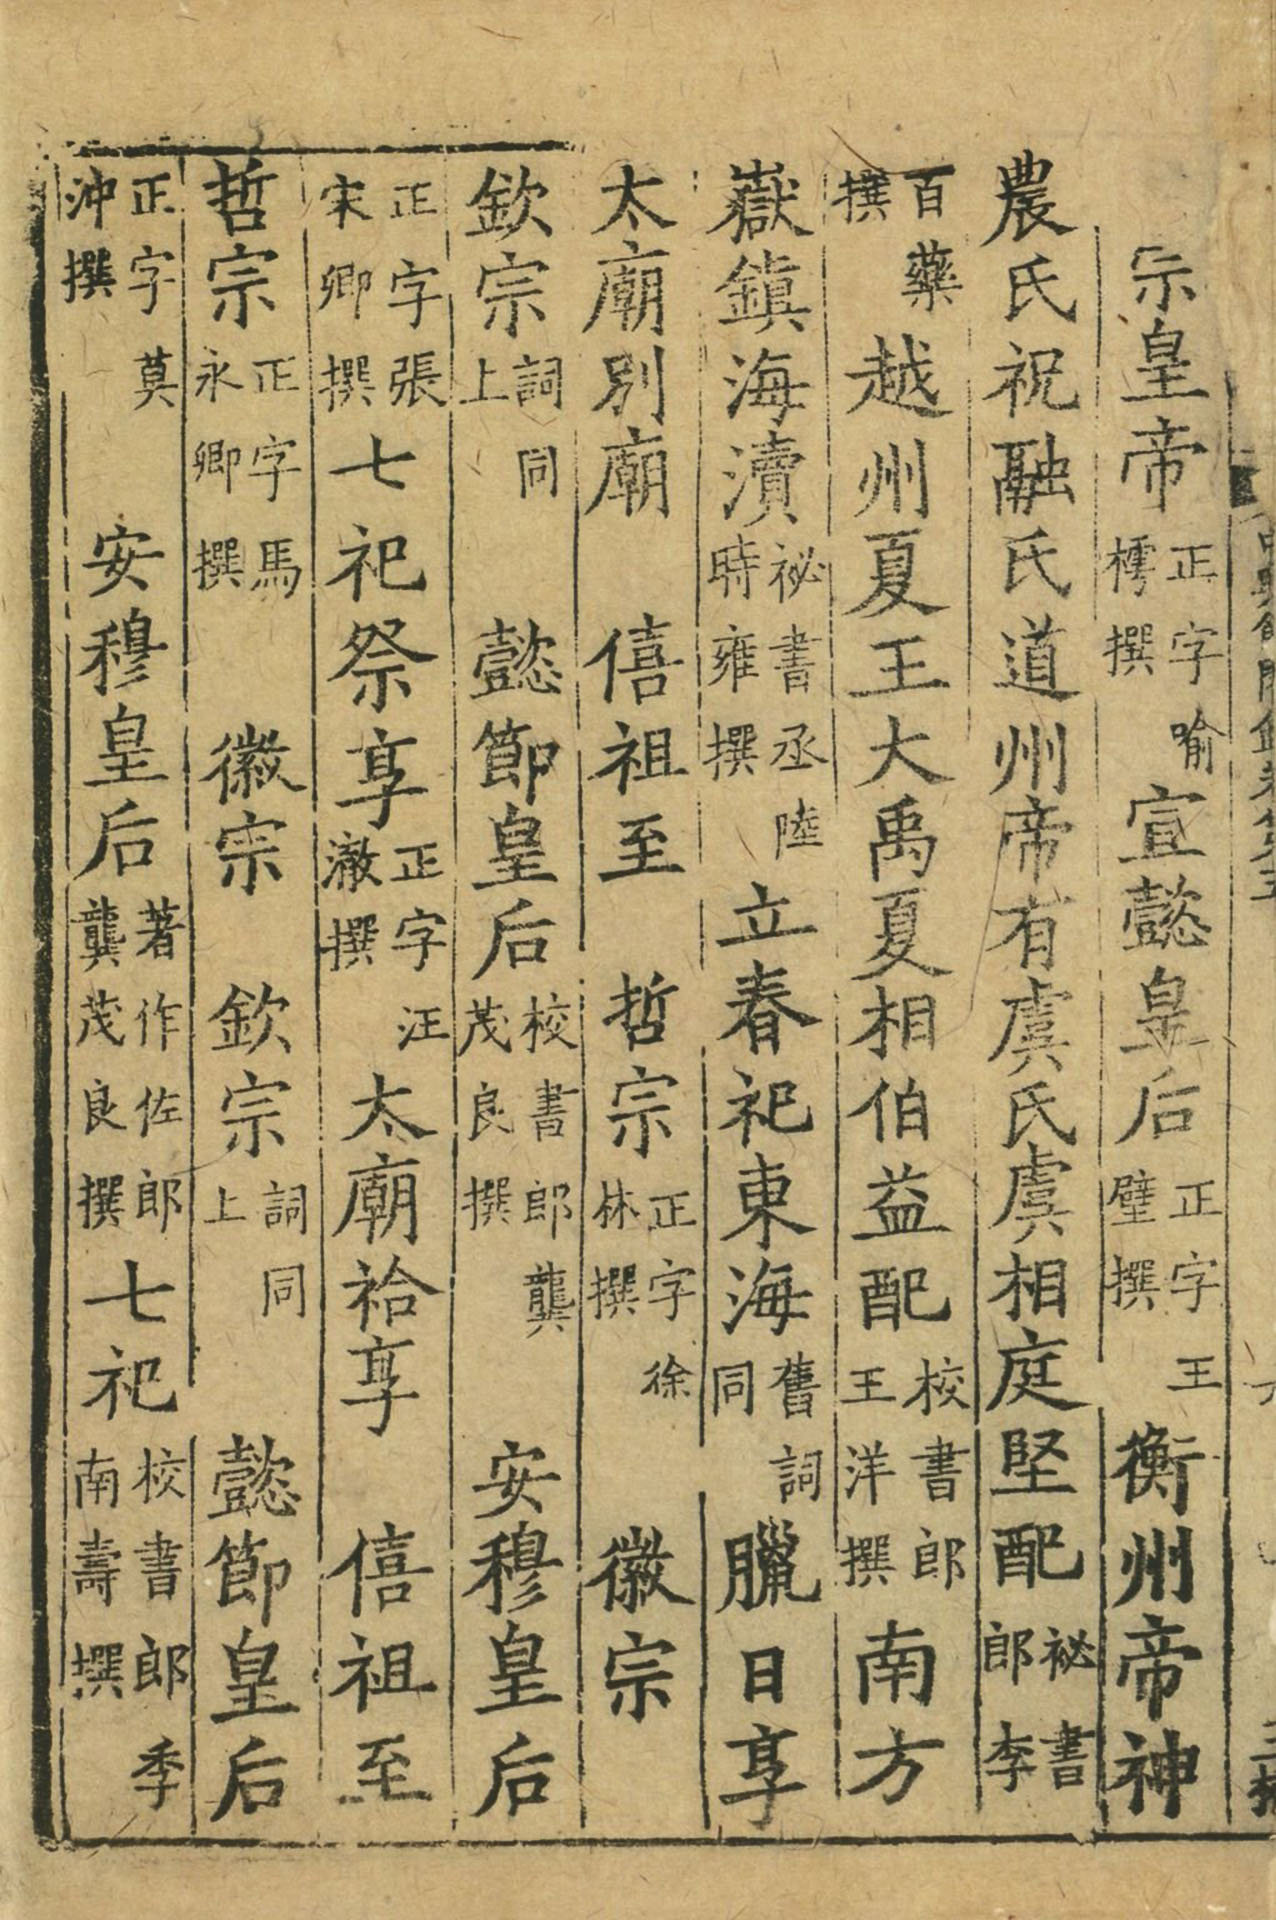 宗皇帝正字喻樗撰宣懿皇后正字王璧撰衡州帝神
農氏祝融氏道州帝有虞氏虞相庭堅配祕書郎李
百藥撰越州夏王大禹夏相伯益配校書郎王洋撰南方
嶽鎮海瀆祕書丞陸時雍撰立春祀東海舊詞同臘日享
太廟別廟 僖祖至 哲宗正字徐林撰 徽宗
欽宗詞同上 懿節皇后校書郎龔茂良撰 安穆皇后
正字張宋卿撰七祀祭享正字汪澈撰太廟祫享 僖祖至
哲宗正字馬永卿撰 徽宗 欽宗詞同上 懿節皇后
正字莫沖撰 安穆皇后著作佐郎龔茂良撰七祀校書郎季南壽撰